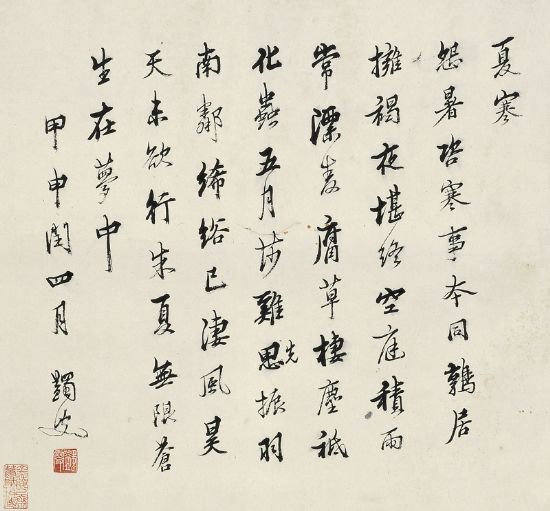 夏寒
怨暑咨寒事本同鶉居
擁褐夜堪終空庭積雨
常漂麥腐草棲塵祇
化蟲五月莎雞思先振羽
南鄰絺綌已淒風昊
天未欲行朱夏無限蒼
生在夢中
甲申閏四月 蠲叟